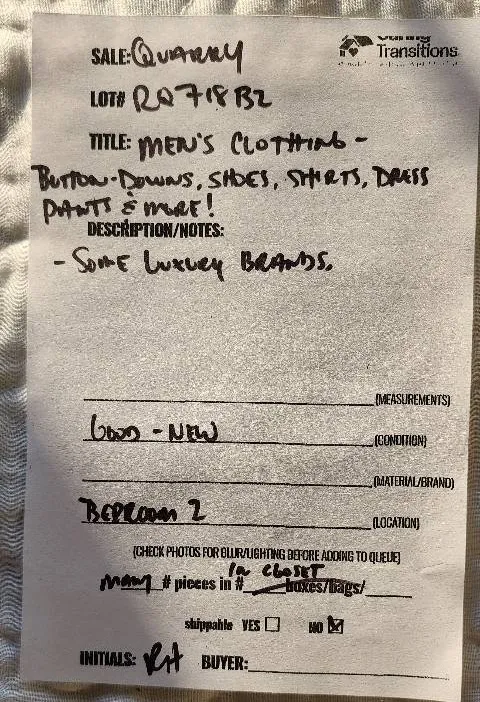 Caring
Transitions
SALE: QUARRY
LOT# RQ718B2
TITLE: MEN'S CLOTHING -
BUTTON-DOWNS, SHOES, SHIRTS, DRESS
PANTS & MORE!
DESCRIPTION/NOTES:
- SOME LUXURY BRANDS.
(MEASUREMENTS)
GOOD - NEW (CONDITION)
(MATERIAL/BRAND)
BEDROOM 2 (LOCATION)
(CHECK PHOTOS FOR BLUR/LIGHTING BEFORE ADDING TO QUEUE)
IN CLOSET
MANY # pieces in # boxes/bags/
shippable YES ☐ NO ☒
INITIALS: RH BUYER: